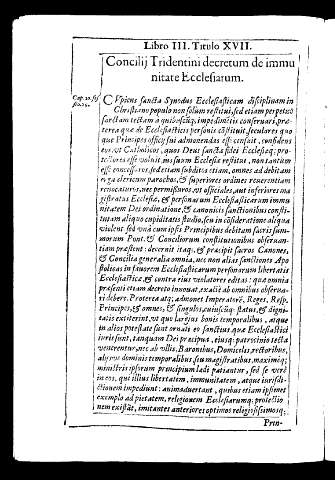 Libro III. Titulo XVII.
Concilij Tridentini decretum de immu
nitate Ecclesiarum.
Cap. 20. ses
CVpiens sancta Synodus Ecclesiasticam disciplinam in
Christiano populo non solum restitui, sed etiam perpetuò
sartam tectam à quibuscūq; impedimētis conseruari, præ-
terea quæ de Ecclesiasticis personis cōstituit, seculares quo
que Principes officij sui admonendos esse censuit, confidens
eos, vt Catholicos, quos Deus sanctæ fidei Ecclesiæq; pro-
tectores esse voluit, ius suum Ecclesiæ restitui, non tantum
esse concessuros, sed etiam subditos suos, omnes ad debitam
erga clericum parochos, & superiores ordines reuerentiam
reuocaturos, nec permissuros, vt officiales, aut inferiores ma
gistratus Ecclesiæ, & personarum Ecclesiasticarum immu
nitatem Dei ordinatione, & canonicis sanctionibus consti-
tutam aliquo cupiditatis studio, seu in cōsideratione aliqua
violent, sed vnà cum ipsis Principibus debitam sacris sum-
morum Pont. & Conciliorum constitutionibus obseruan-
tiam præstent: decernit itaq; & præcipit sacros Canones,
& Concilia generalia omnia, nec non alias sanctiones Apo
stolicas in fauorem Ecclesiasticarum personarum libertatis
Ecclesiasticæ, & contra eius violatores editas: quæ omnia
præsenti etiam decreto innouat, exactè ab omnibus obserua-
ri debere. Proterea atq; admonet Imperatorē, Reges, Resp.
Principes, & omnes, & singulos, cuiuscūq; status, & digni-
tatis extiterint, vt quo largius bonis temporalibus, atque
in alios potestate sunt ornati eo sanctius, quæ Ecclesiastici
iuris sunt, tanquam Dei præcipua, eiusq; patrocinio tecta
venerentur, nec ab vllis Baronibus, Domicelis, rectoribus,
alijsve dominis temporalibus, seu magistratibus, maximèq;
ministris ipsorum principium lædi patiantur, sed seuerè
in eos, qui illius libertatem, immunitatem, atque iurisdi-
ctionem impediunt: animaduertant, quibus etiam ipsimet
exemplo ad pietatem, religionem Ecclesiarumq; protectio
nem existāt, imitantes anteriores optimos religiosissimosq;
Prin-